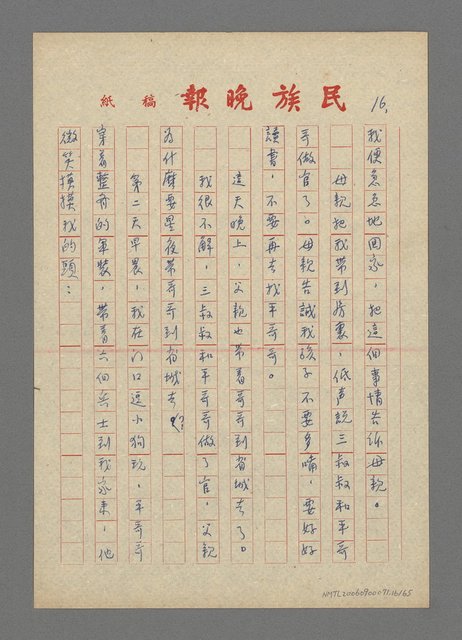 民族晚報 稿紙
16.
我便急急地回家，把這個事情告訴母親。
母親把我帶到房裏，低声說三叔叔和平哥
哥做官了。母親告誡我孩子不要多嘴，要好好
讀書，不要再去找平哥哥。
這天晚上，父親也帶着哥哥到省城去了。
我很不解，三叔叔和平哥哥做了官，父親
為什麼要星夜帶哥哥到省城去？
第二天早晨，我在门口逗小狗玩，平哥哥
穿着整齊的軍裝，帶着六個兵士到我家来，他
微笑摸摸我的頭：
NMTL20060900071.16/65